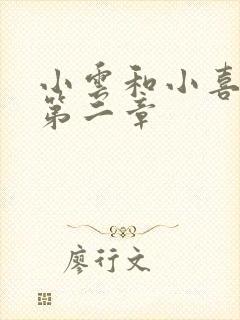 小雲和小喜
第二章
廖行文